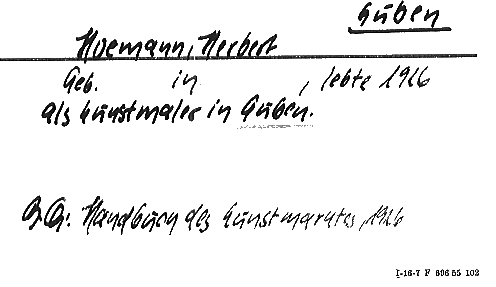 Guben
Huemann, Herbert
Geb. in , lebte 1926
als Kunstmaler in Guben.
Handbuch des Kunstmarktes, 1926
I-16-7 F 696 55 102